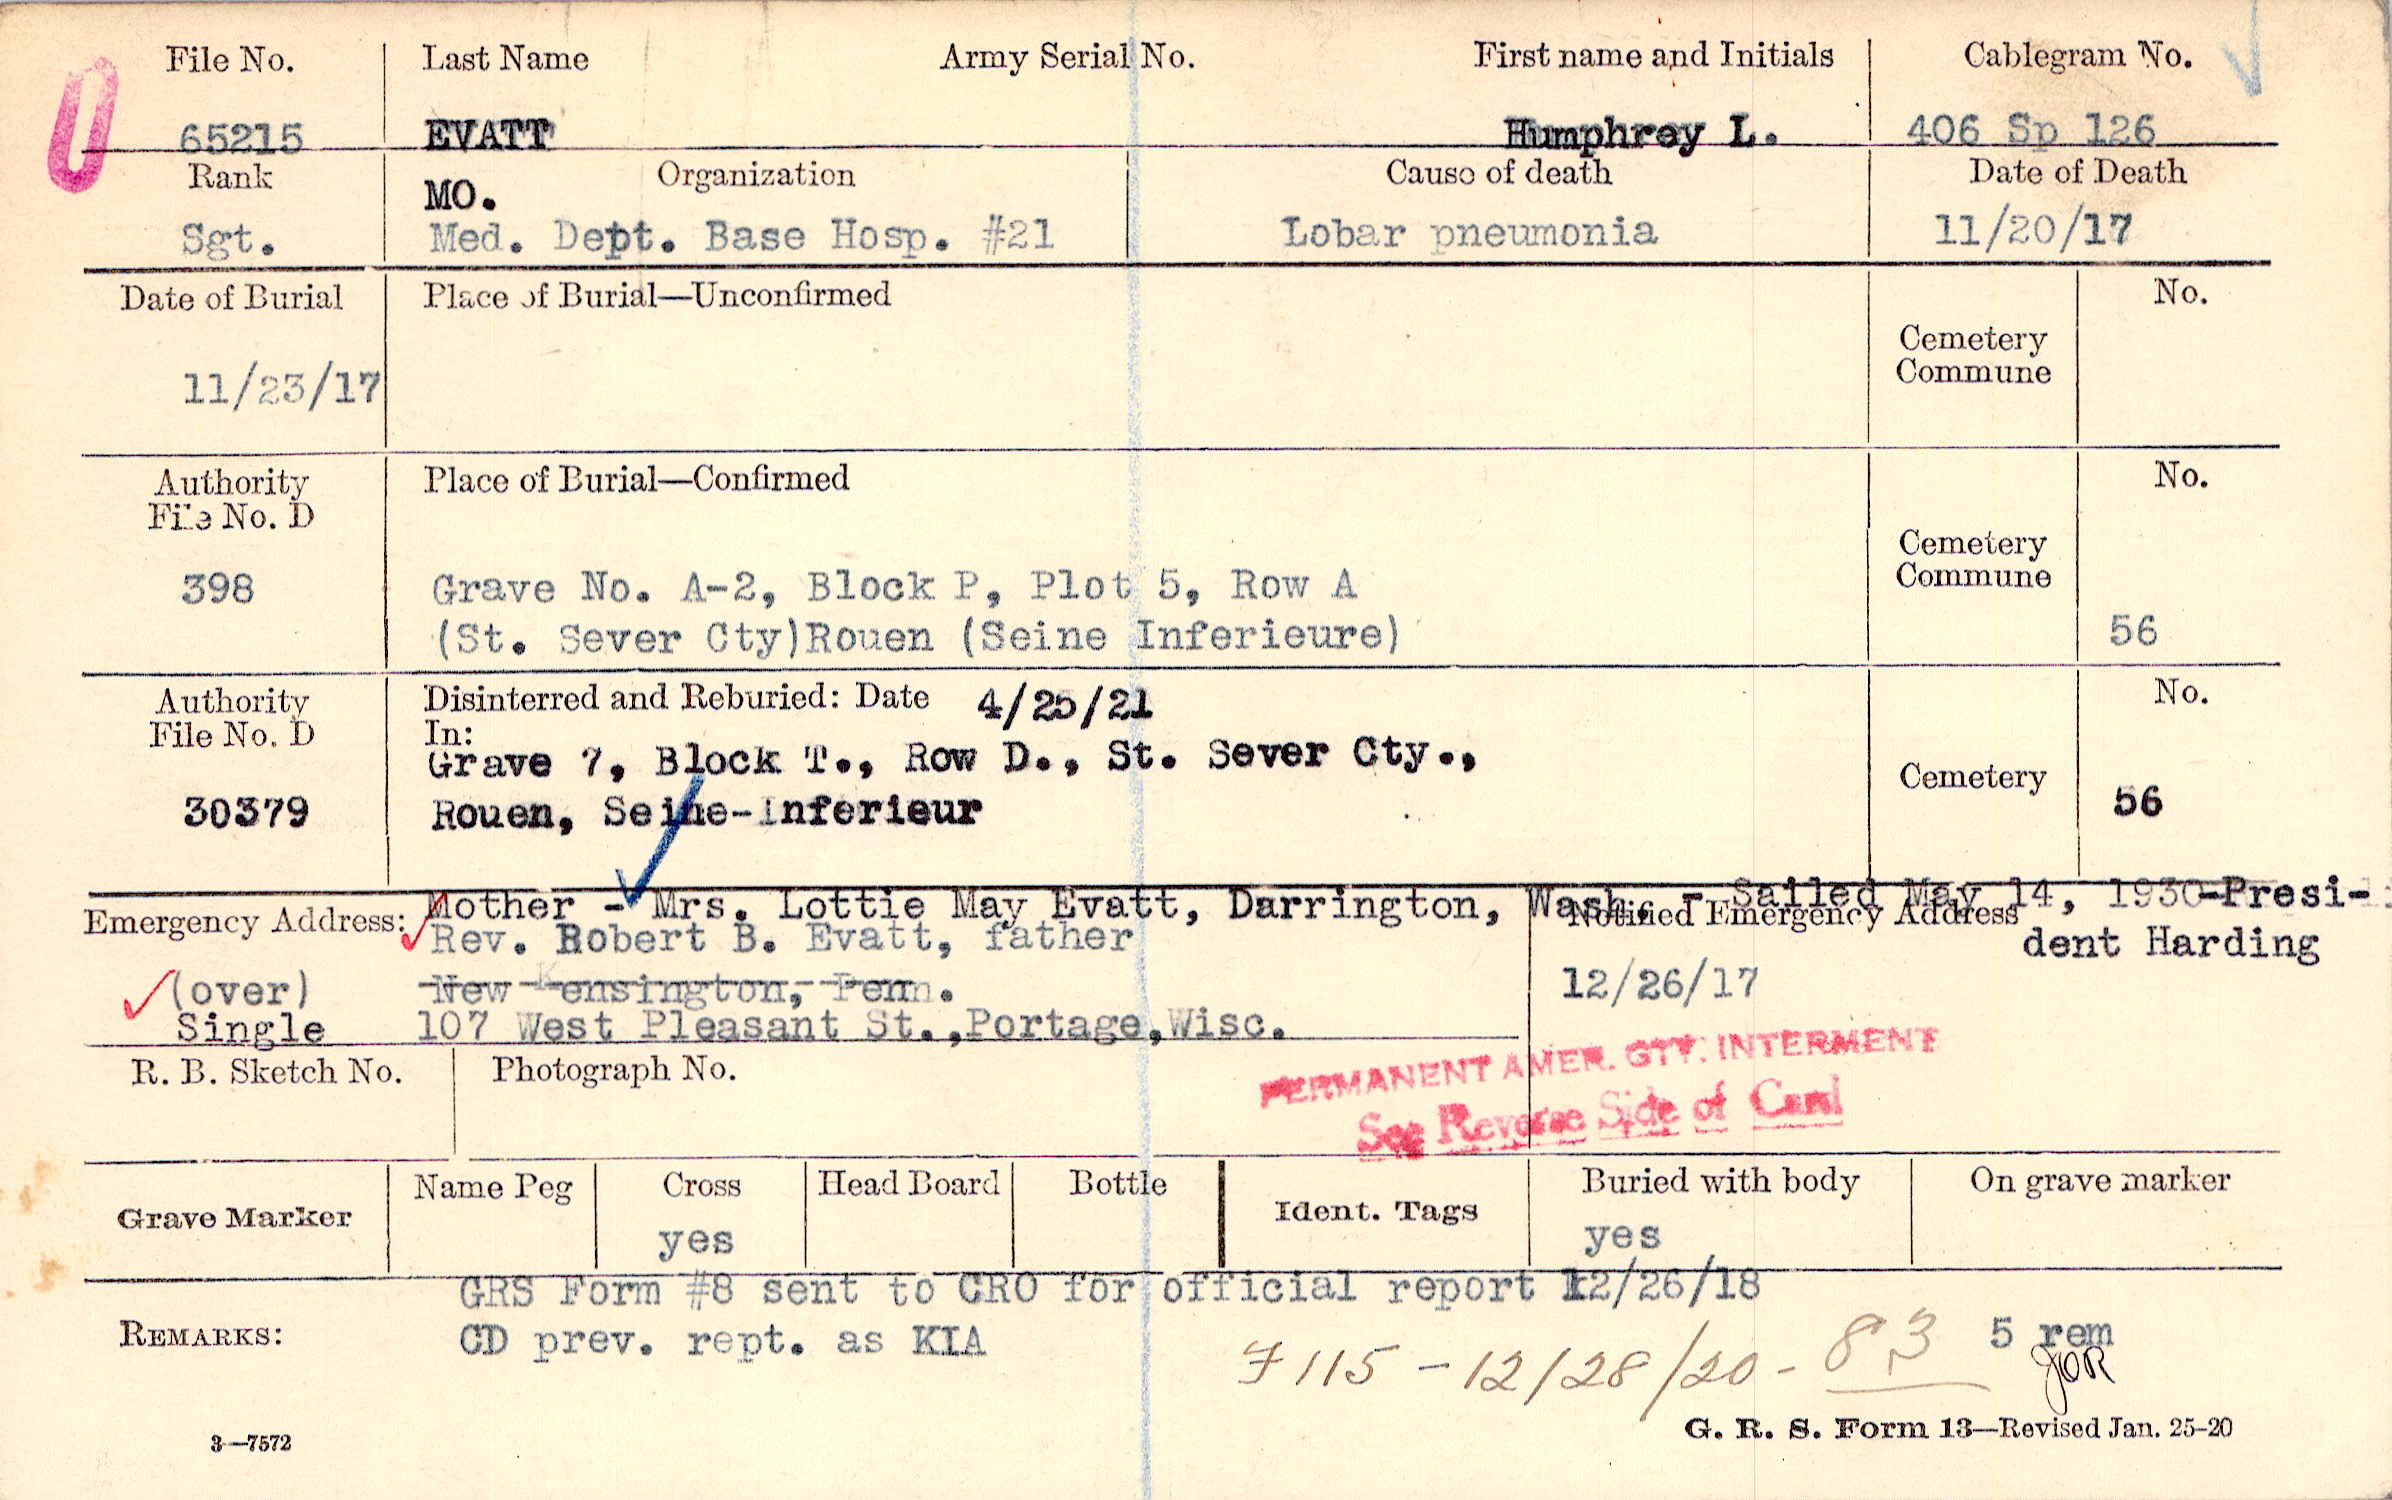 File No. Last Name Army Serial No. First name and Initials Cablegram No.
65215 EVATT Humphrey L. 406 Sp 126
Rank Organization Cause of death Date of Death
MO.
Sgt. Med. Dept. Base Hosp. #21 Lobar pneumonia 11/20/17
Date of Burial Place of Burial—Unconfirmed No.
Cemetery
Commune
11/23/17
Authority Place of Burial—Confirmed No.
File No. D
Cemetery
Commune
398 Grave No. A-2, Block P, Plot 5, Row A
(St. Sever Cty)Rouen (Seine Inferieure) 56
Authority Disinterred and Reburied: Date 4/25/21 No.
File No. D In:
Grave 7, Block T., Row D., St. Sever Cty.,
Cemetery
30379 Rouen, Seine-Inferieur 56
Mother - Mrs. Lottie May Evatt, Darrington, Wash. - Sailed May 14, 1930-Presi-
Emergency Address: Notified Emergency Address
Rev. Robert B. Evatt, father dent Harding
(over) New Kensington, Penn. 12/26/17
Single 107 West Pleasant St.,Portage,Wisc.
R. B. Sketch No. Photograph No.
PERMANENT AMER. CTY. INTERMENT
See Reverse Side of Card
Grave Marker Name Peg Cross Head Board Bottle Ident. Tags Buried with body On grave marker
yes yes
GRS Form #8 sent to CRO for official report 12/26/18
REMARKS: CD prev. rept. as KIA 5 rem
F115 - 12/28/20 - 83 JOR
G. R. S. Form 13—Revised Jan. 25-20
3—7572